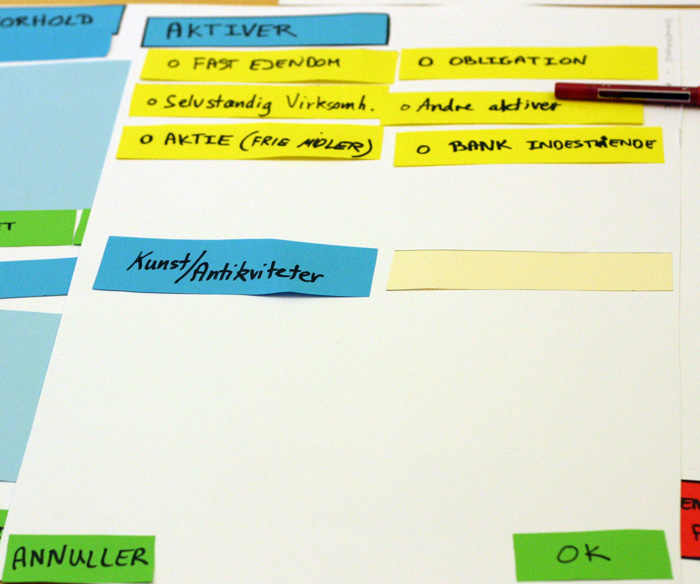 ORHOLD
AKTIVER
o FAST EJENDOM
o OBLIGATION
o Selvstændig Virksomh.
o Andre aktiver
o AKTIE (FRIE MIDLER)
o BANK INDESTÅENDE
Kunst/Antikviteter
ANNULLER
OK